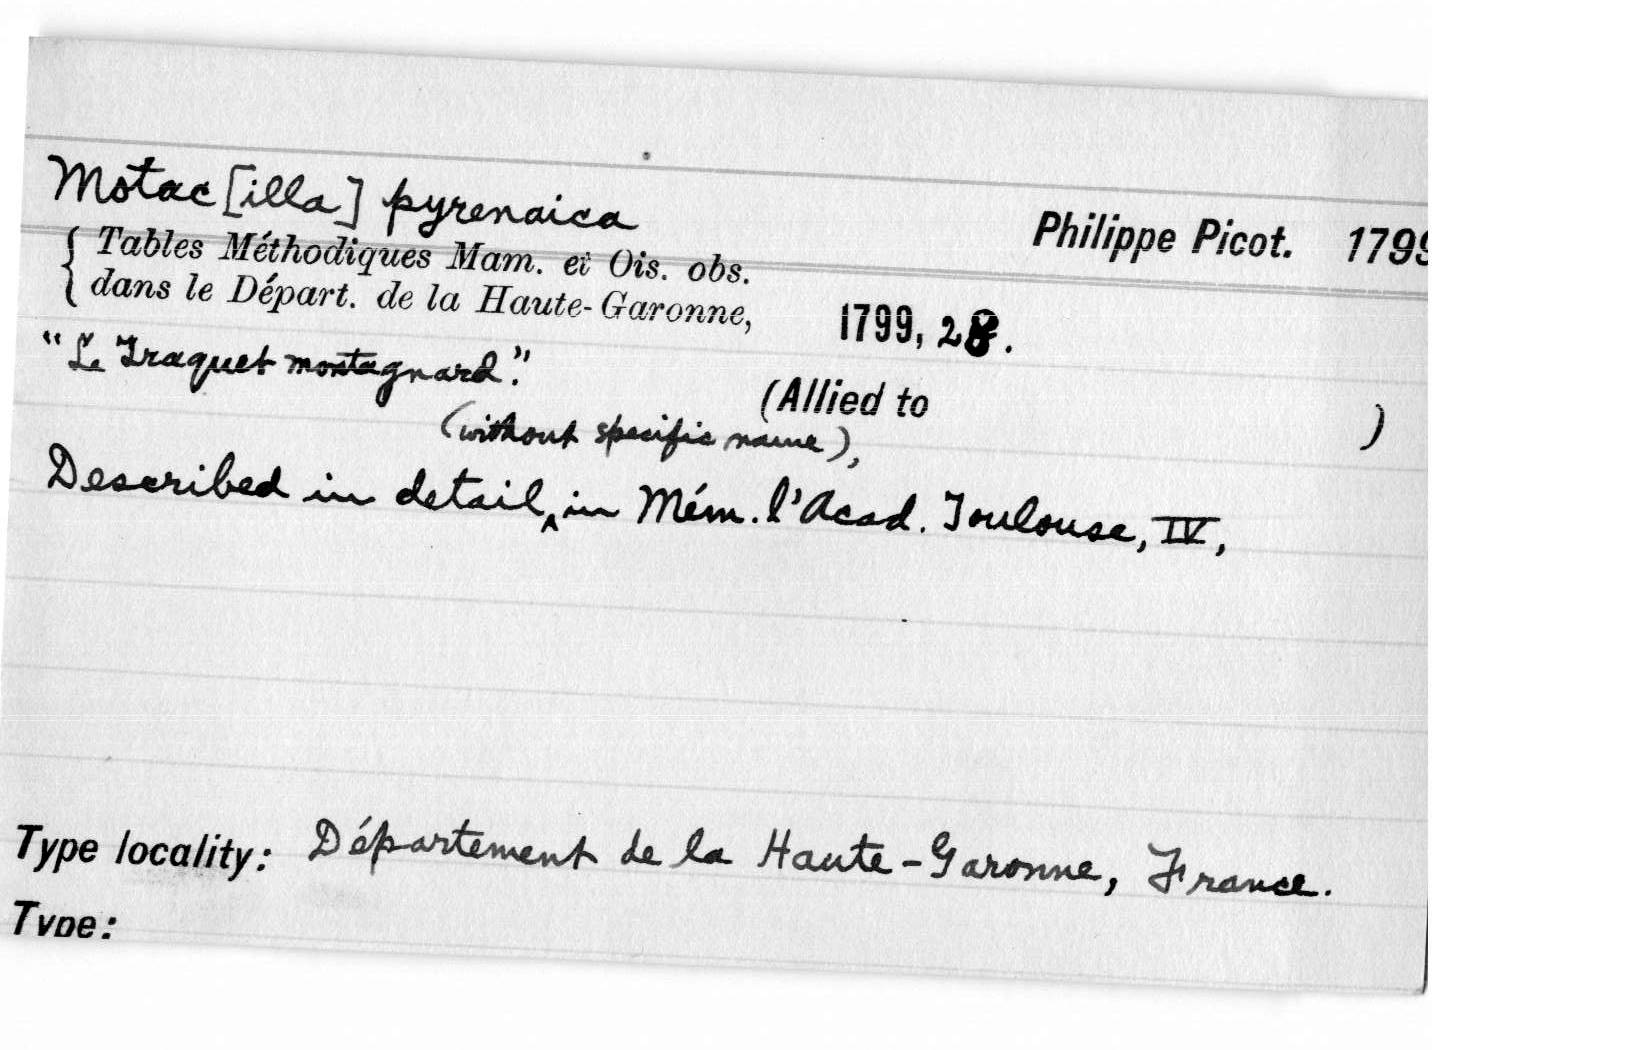 Motac[illa] pyrenaica
Philippe Picot. 1799
Tables Méthodiques Mam. et Ois. obs.
dans le Départ. de la Haute-Garonne, 1799, 28.
"Le Traquet montagnard."
(Allied to )
(without specific name),
Described in detail ‸ in Mém. l'Acad. Toulouse, IV,
Type locality: Département de la Haute-Garonne, France.
Type: